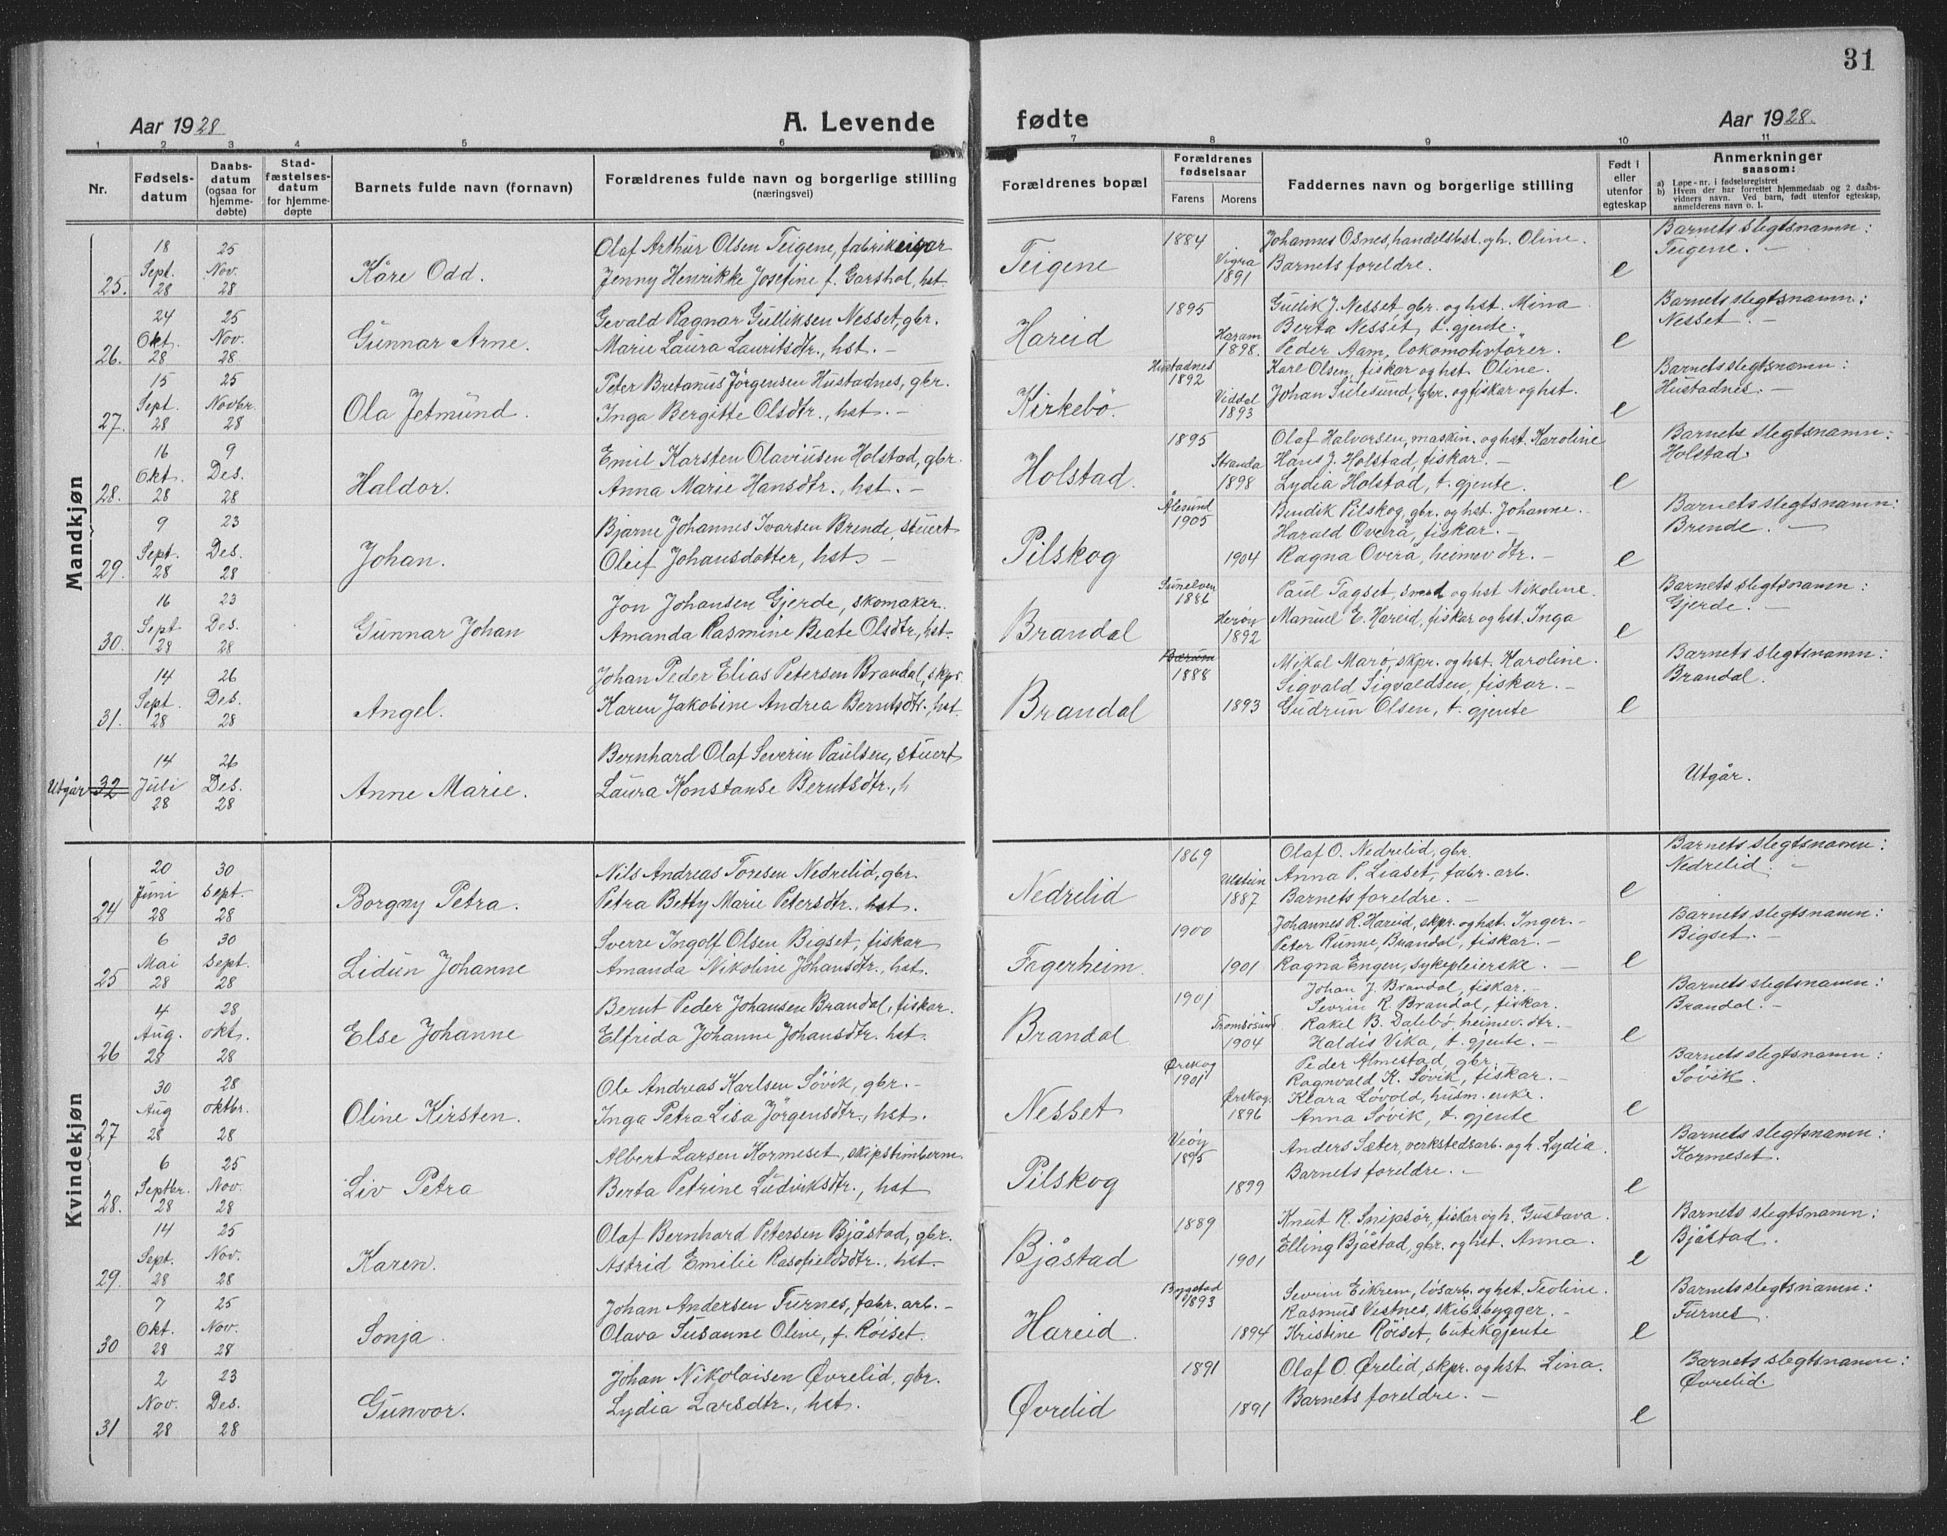 31
Aar 1928
A. Levende
fødte
Aar 1928.
1 2 3 4 5 6 7 8 9 10 11
Nr.
Fødsels-
datum
Daabs-
datum
(ogsaa for
hjemme-
døbte)
Stad-
fæstelses-
datum
for hjemme-
døpte
Barnets fulde navn (fornavn)
Forældrenes fulde navn og borgerlige stilling
(næringsvei)
Forældrenes bopæl
Forældrenes
fødselsaar
Farens Morens
Faddernes navn og borgerlige stilling
Født i
eller
utenfor
egteskap
Anmerkninger
saasom:
a) Løpe-nr. i fødselsregistret
b) Hvem der har forrettet hjemmedaab og 2 daabs-
vidners navn. Ved barn, født utenfor egteskap,
anmelderens navn o. l.
Mandkjøn
25. 18 Sept. 28 25 Nov. 28 Kåre Odd.
Olaf Arthur Olsen Teigene, fabrikeigar
Jenny Henrikke Josefine f. Garshol, hst
Teigene 1884 Vigra 1891
Johannes Osnes, handelsbst. og h. Oline.
Barnets foreldre.
e
Barnets slegtsnamn:
Teigene. -
26. 24 Okt. 28 25 Nov. 28 Gunnar Arne.
Gevald Ragnar Gulliksen Nesset, gbr.
Marie Laura Lauritsdtr., hst. -
Hareid 1895 Haram 1898.
Gullik J. Nesset gbr. og hst. Mina
Berta Nesset t. gjente.
Peder Aam, lokomotivfører.
e
Barnets slegtsnamn:
Nesset. -
27. 15 Sept. 28 25 Novbr. 28 Ola Jetmund.
Peter Bretanus Jörgensen Hustadnes, gbr.
Inga Bergitte Olsdtr., hst. -
Kirkebö. Hustadnes 1892 Viddal 1893
Karl Olsen, fiskar og hst. Oline.
Johan Sulesund, gbr. og fiskar og hst.
e
Barnets slegtsnamn:
Hustadnes. -
28. 16 Okt. 28 9 Des. 28 Haldor.
Emil Karsten Olaviusen Holstad, gbr.
Anna Marie Hansdtr., hst. -
Holstad. 1895 Stranda 1898
Olaf Halvorsen, maskin. og hst. Karoline
Hans J. Holstad, fiskar. -
Lydia Holstad, t. gjente.
e
Barnets slegtsnamn:
Holstad.
29. 9 Sept. 28 23 Des. 28 Johan.
Bjarne Johannes Ivarsen Brende, stuert
Oleif Johansdotter, hst -
Pilskog Ålesund 1905 1904
Bendik Pilskog, gbr. og hst. Johanne.
Harald Overå, fiskar. -
Ragna Overå, heimev. dtr. -
e
Barnets slegtsnamn:
Brende. -
30. 16 Sept 28 23 Des. 28 Gunnar Johan
Jon Johansen Gjerde, skomaker.
Amanda Rasmine Beate Olsdtr, hst-
Brandal Sunelven 1886 Herøy 1892
Paul Tagset, smed og hst Nikoline.
Manuel E. Hareid, fiskar og hst. Inga
e
Barnets slegtsnamn:
Gjerde. -
31. 14 Sept. 28 26 Des. 28 Angel.
Johan Peder Elias Petersen Brandal, skpr.
Karen Jakobine Andrea Berntsdtr., hst.
Brandal 1888 1893
Mikal Marö, skpr. og hst. Karoline.
Sigvald Sigvaldsen, fiskar. -
Gudrun Olsen, t. gjente
e
Barnets slegtsnamn:
Brandal.
Utgår 32 14 Juli 28 26 Des. 28 Anne Marie.
Bernhard Olaf Severin Paulsen, stuert
Laura Konstanse Berntsdtr., h
Utgår.
Kvindekjøn
24 20 Juni 28 30 Sept. 28 Borgny Petra.
Nils Andreas Toresen Nedrelid, gbr.
Petra Betty Marie Petersdtr., hst.
Nedrelid 1869 Ulstein 1887
Olaf O. Nedrelid, gbr.
Anna P. Liaset, fabr. arb.
Barnets foreldre. -
e
Barnets slegtsnamn:
Nedrelid. -
25 6 Mai 28 30 Sept. 28 Lidun Johanne
Sverre Ingolf Olsen Bigset, fiskar
Amanda Nikoline Johansdtr., hst.
Fagerheim. 1900 1901
Johannes R. Hareid, skpr. og hst. Inger. -
Peter Runne, Brandal, fiskar. -
Ragna Engen, sykepleierske. -
e
Barnets slegtsnamn:
Bigset. -
26 4 Aug. 28 28 okt. 28 Else Johanne
Bernt Peder Johansen Brandal, fiskar.
Elfrida Johanne Johansdtr. hst.
Brandal 1901 Tromsøsund 1904
Johan J. Brandal, fiskar. -
Sevrin R. Brandal, fiskar.
Rakel B. Dalebø, heimev. dtr. -
Haldis Vika, t. gjente. -
e
Barnets slegtsnamn:
Brandal. -
27 30 Aug 28 28 oktbr. 28 Oline Kirsten.
Ole Andreas Karlsen Søvik, gbr. -
Inga Petra Lisa Jörgensdtr., hst.
Nesset Ørskog 1901 Ørskog. 1896
Peder Almestad, gbr. -
Ragnvald K. Søvik, fiskar. -
Klara Løvold, husm. enke.
Anna Søvik, t. gjente
e
Barnets slegtsnamn:
Søvik.
28. 6 Septbr. 28 25 Nov. 28 Liv Petra
Albert Larsen Kormeset, skipstimberm.
Berta Petrine Ludviksdtr., hst
Pilskog Veøy 1895 1899
Anders Sæter, verkstedsarb. og h. Lydia.
Barnets foreldre. -
e
Barnets slegtsnamn:
Kormeset.
29. 14 Sept. 28 25 Nov. 28 Karen.
Olaf Bernhard Petersen Bjåstad, gbr.
Astrid Emilie Rasofieldsdtr., hst-
Bjåstad 1889 1901
Knut R. Snipsør, fiskar og h. Gustava.
Elling Bjåstad, gbr. og hst. Anna.
e
Barnets slegtsnamn:
Bjåstad.
30 7 Okt. 28 25 Nov. 28 Sonja.
Johan Andersen Furnes, fabr. arb. -
Olava Susanne Oline, f. Röiset.
Hareid. Bygstad 1893 1894
Sevrin Eikrem, løsarb. og hst. Teoline.
Rasmus Vestnes, skibsbygger. -
Kristine Røiset, butikgjente
e
Barnets slegtsnamn:
Furnes.
31 2 Nov. 28 23 Des. 28 Gunvor.
Johan Nikolaisen Øvrelid, gbr.
Lydia Larsdtr., hst.
Øvrelid 1891 1891
Olaf O. Ørelid, skpr. og hst Lina.
Barnets foreldre. -
e
Barnets slegtsnamn:
Øvrelid.